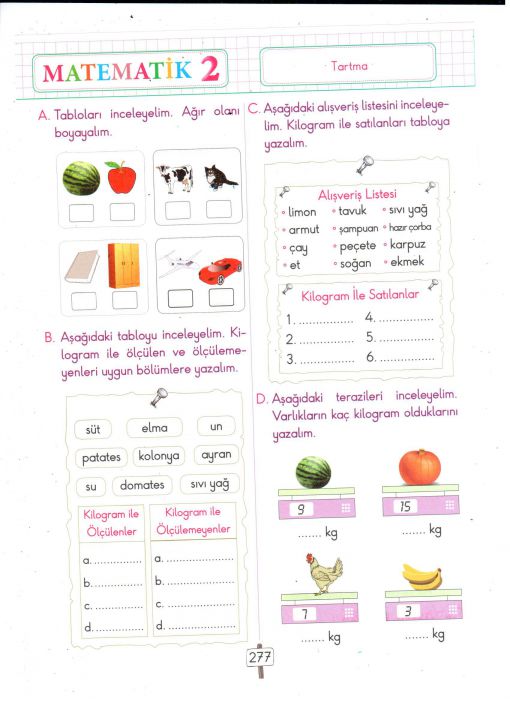 MATEMATİK 2
Tartma
A. Tabloları inceleyelim. Ağır olanı
boyayalım.
B. Aşağıdaki tabloyu inceleyelim. Ki-
logram ile ölçülen ve ölçüleme-
yenleri uygun bölümlere yazalım.
süt elma un
patates kolonya ayran
su domates sıvı yağ
Kilogram ile
Ölçülenler
a. ....................
b. ....................
c. ....................
d. ....................
Kilogram ile
Ölçülemeyenler
a. ....................
b. ....................
c. ....................
d. ....................
C. Aşağıdaki alışveriş listesini inceleye-
lim. Kilogram ile satılanları tabloya
yazalım.
Alışveriş Listesi
• limon • tavuk • sıvı yağ
• armut • şampuan • hazır çorba
• çay • peçete • karpuz
• et • soğan • ekmek
Kilogram İle Satılanlar
1. .................... 4. ....................
2. .................... 5. ....................
3. .................... 6. ....................
D. Aşağıdaki terazileri inceleyelim.
Varlıkların kaç kilogram olduklarını
yazalım.
9 15
....... kg ....... kg
7 3
....... kg ....... kg
277